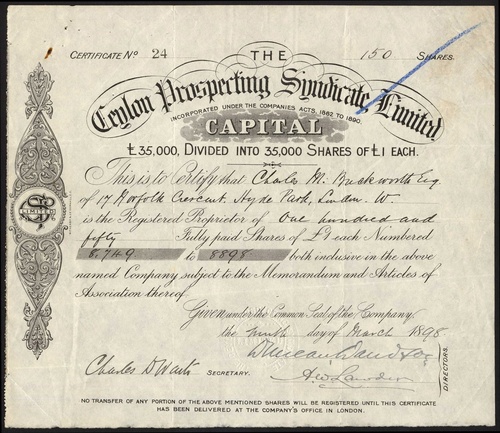 CERTIFICATE No 24 THE 150 SHARES.
Ceylon Prospecting Syndicate, Limited
INCORPORATED UNDER THE COMPANIES ACTS, 1862 TO 1890.
CAPITAL
£35,000, DIVIDED INTO 35,000 SHARES OF £1 EACH.
This is to Certify that Charles M. Buckworth Esq
of 17 Norfolk Crescent, Hyde Park, London. W
is the Registered Proprietor of One hundred and
fifty Fully paid Shares of £1 each Numbered
8,749 to 8898 both inclusive in the above
named Company subject to the Memorandum and Articles of
Association thereof.
Given under the Common Seal of the Company,
the ninth day of March 1898
DIRECTORS.
Charles D SECRETARY.
NO TRANSFER OF ANY PORTION OF THE ABOVE MENTIONED SHARES WILL BE REGISTERED UNTIL THIS CERTIFICATE
HAS BEEN DELIVERED AT THE COMPANY'S OFFICE IN LONDON.
LIMITED